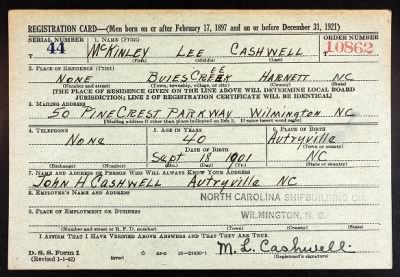 REGISTRATION CARD—(Men born on or after February 17, 1897 and on or before December 31, 1921)
SERIAL NUMBER 1. NAME (Print) ORDER NUMBER
44 McKinley Lee Cashwell 10862
(First) (Middle) (Last)
2. PLACE OF RESIDENCE (Print)
None Buies Creek Harnett NC
(Number and street) (Town, township, village, or city) (County) (State)
[THE PLACE OF RESIDENCE GIVEN ON THE LINE ABOVE WILL DETERMINE LOCAL BOARD
JURISDICTION; LINE 2 OF REGISTRATION CERTIFICATE WILL BE IDENTICAL]
3. MAILING ADDRESS
50 PineCrest Parkway Wilmington NC
[Mailing address if other than place indicated on line 2. If same insert word same]
4. TELEPHONE 5. AGE IN YEARS 6. PLACE OF BIRTH
None 40 Autryville
DATE OF BIRTH (Town or county)
Sept 18 1901 NC
(Exchange) (Number) (Mo.) (Day) (Yr.) (State or country)
7. NAME AND ADDRESS OF PERSON WHO WILL ALWAYS KNOW YOUR ADDRESS
John H Cashwell Autryville NC
8. EMPLOYER'S NAME AND ADDRESS
NORTH CAROLINA SHIPBUILDING CO.
9. PLACE OF EMPLOYMENT OR BUSINESS
WILMINGTON, N. C.
(Number and street or R. F. D. number) (Town) (County) (State)
I AFFIRM THAT I HAVE VERIFIED ABOVE ANSWERS AND THAT THEY ARE TRUE.
D. S. S. Form 1
(Revised 1-1-42) (over) GPO 16—21630-1 M. L. Cashwell.
(Registrant's signature)